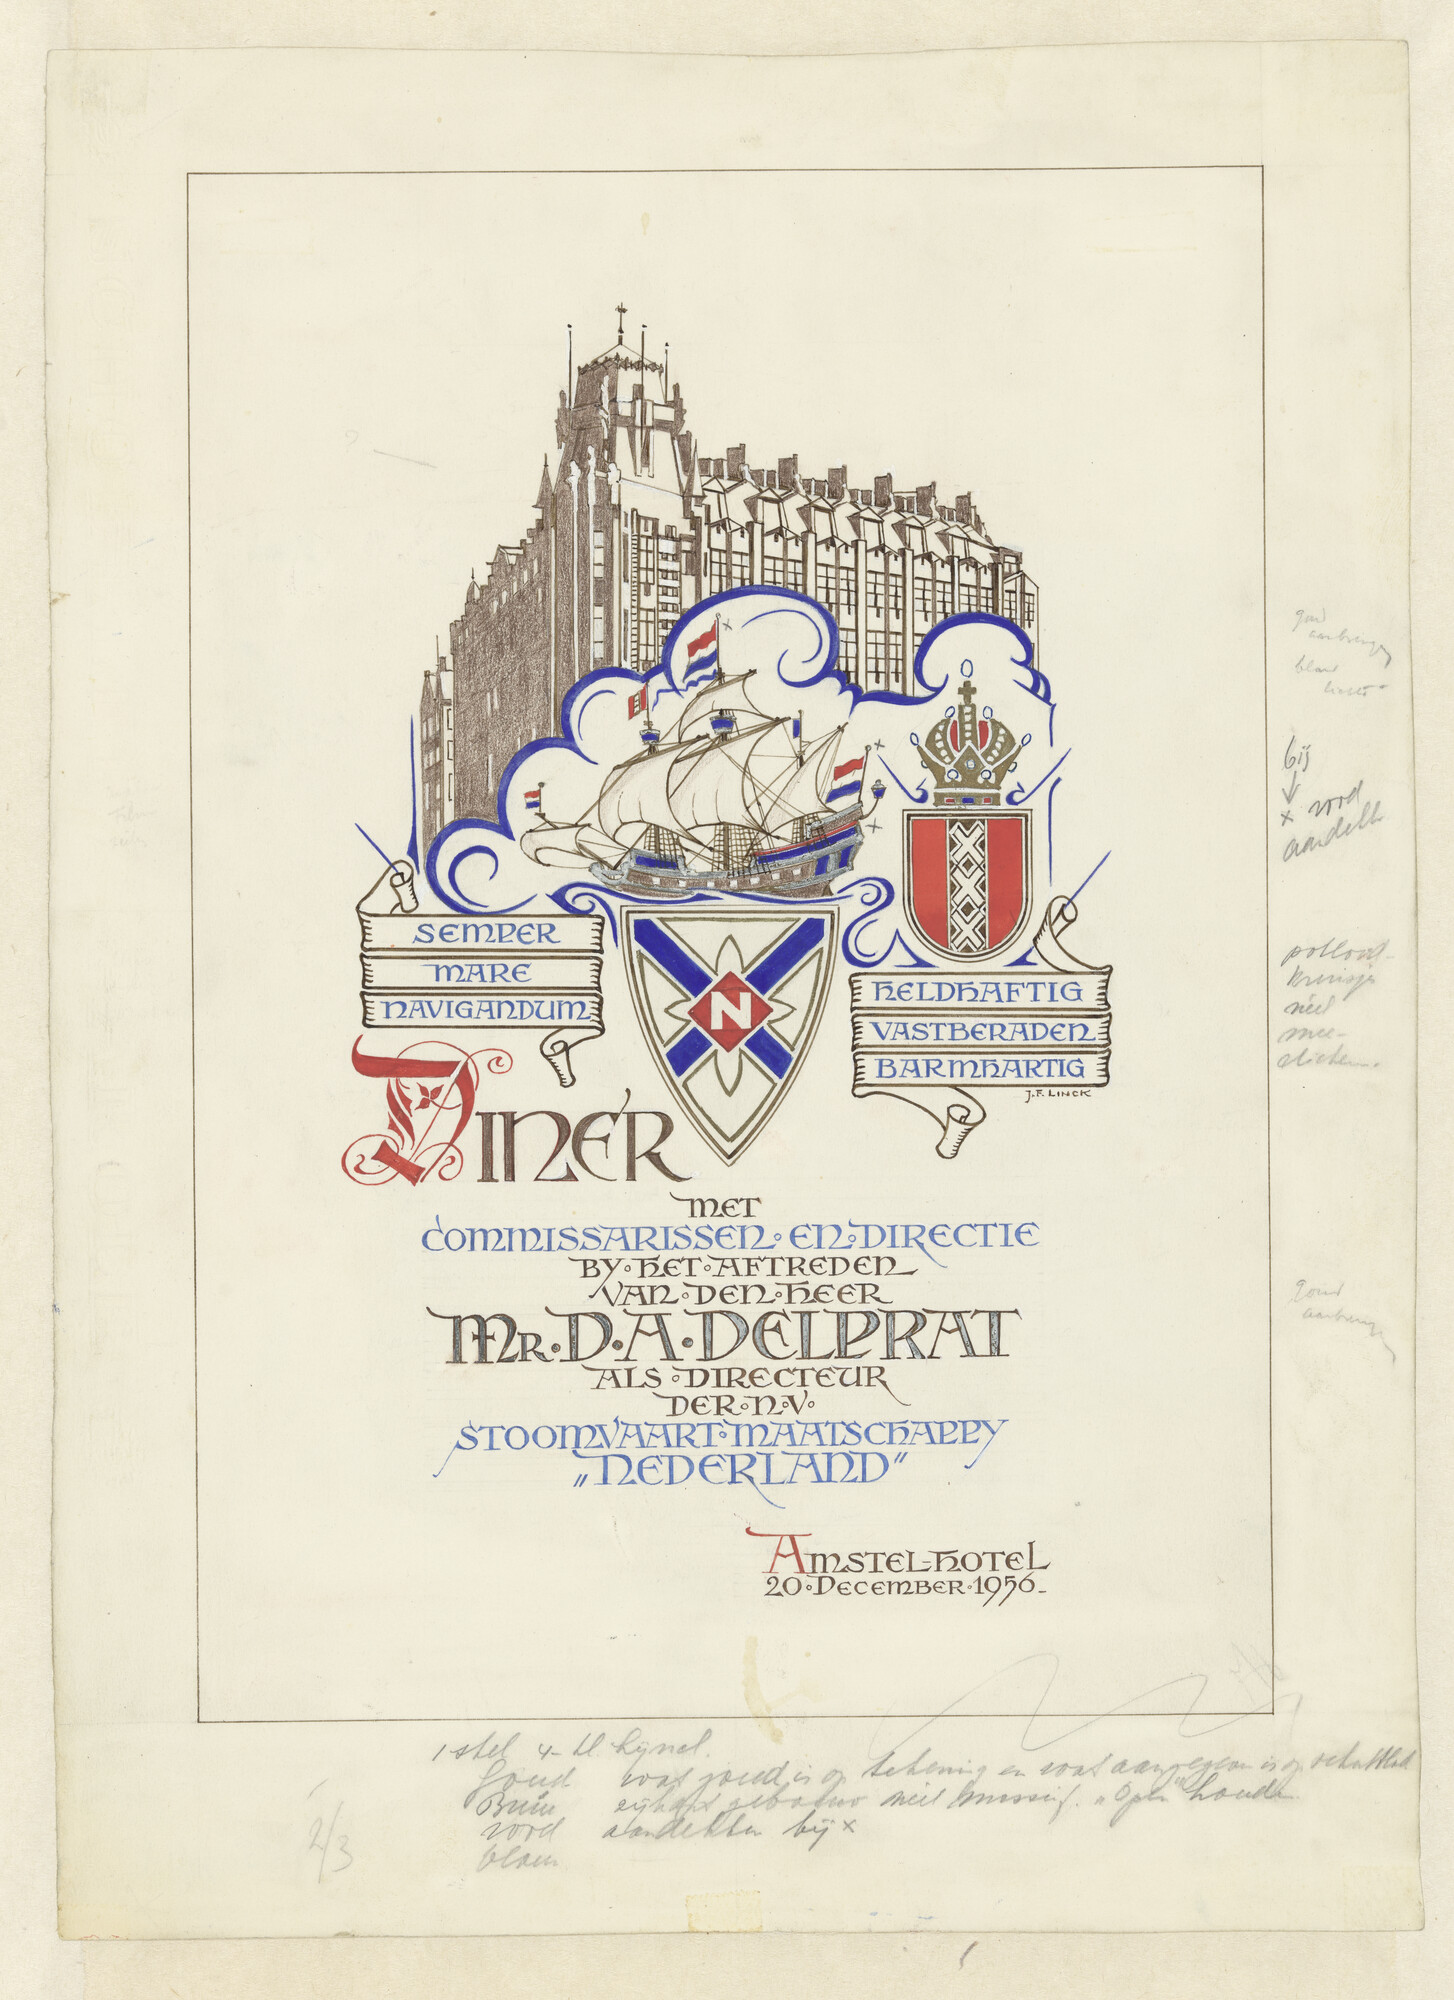 SEMPER
MARE
NAVIGANDUM
N
HELDHAFTIG
VASTBERADEN
BARMHARTIG
J.F. LINCK
DINER
MET
COMMISSARISSEN EN DIRECTIE
BY HET AFTREDEN
VAN DEN HEER
MR. D. A. DELPRAT
ALS DIRECTEUR
DER N.V.
STOOMVAART MAATSCHAPPY
„NEDERLAND”
AMSTEL-HOTEL
20 DECEMBER 1956
bij
x rood
aandikken
potlood-
kruisjes
niet
mee-
clicheren.
goud
1 stel 4-
Goud wat goud is op tekening en wat aangegeven is op
Bruin niet massief. „Open" houden
rood aandikken bij x
blauw
2/3